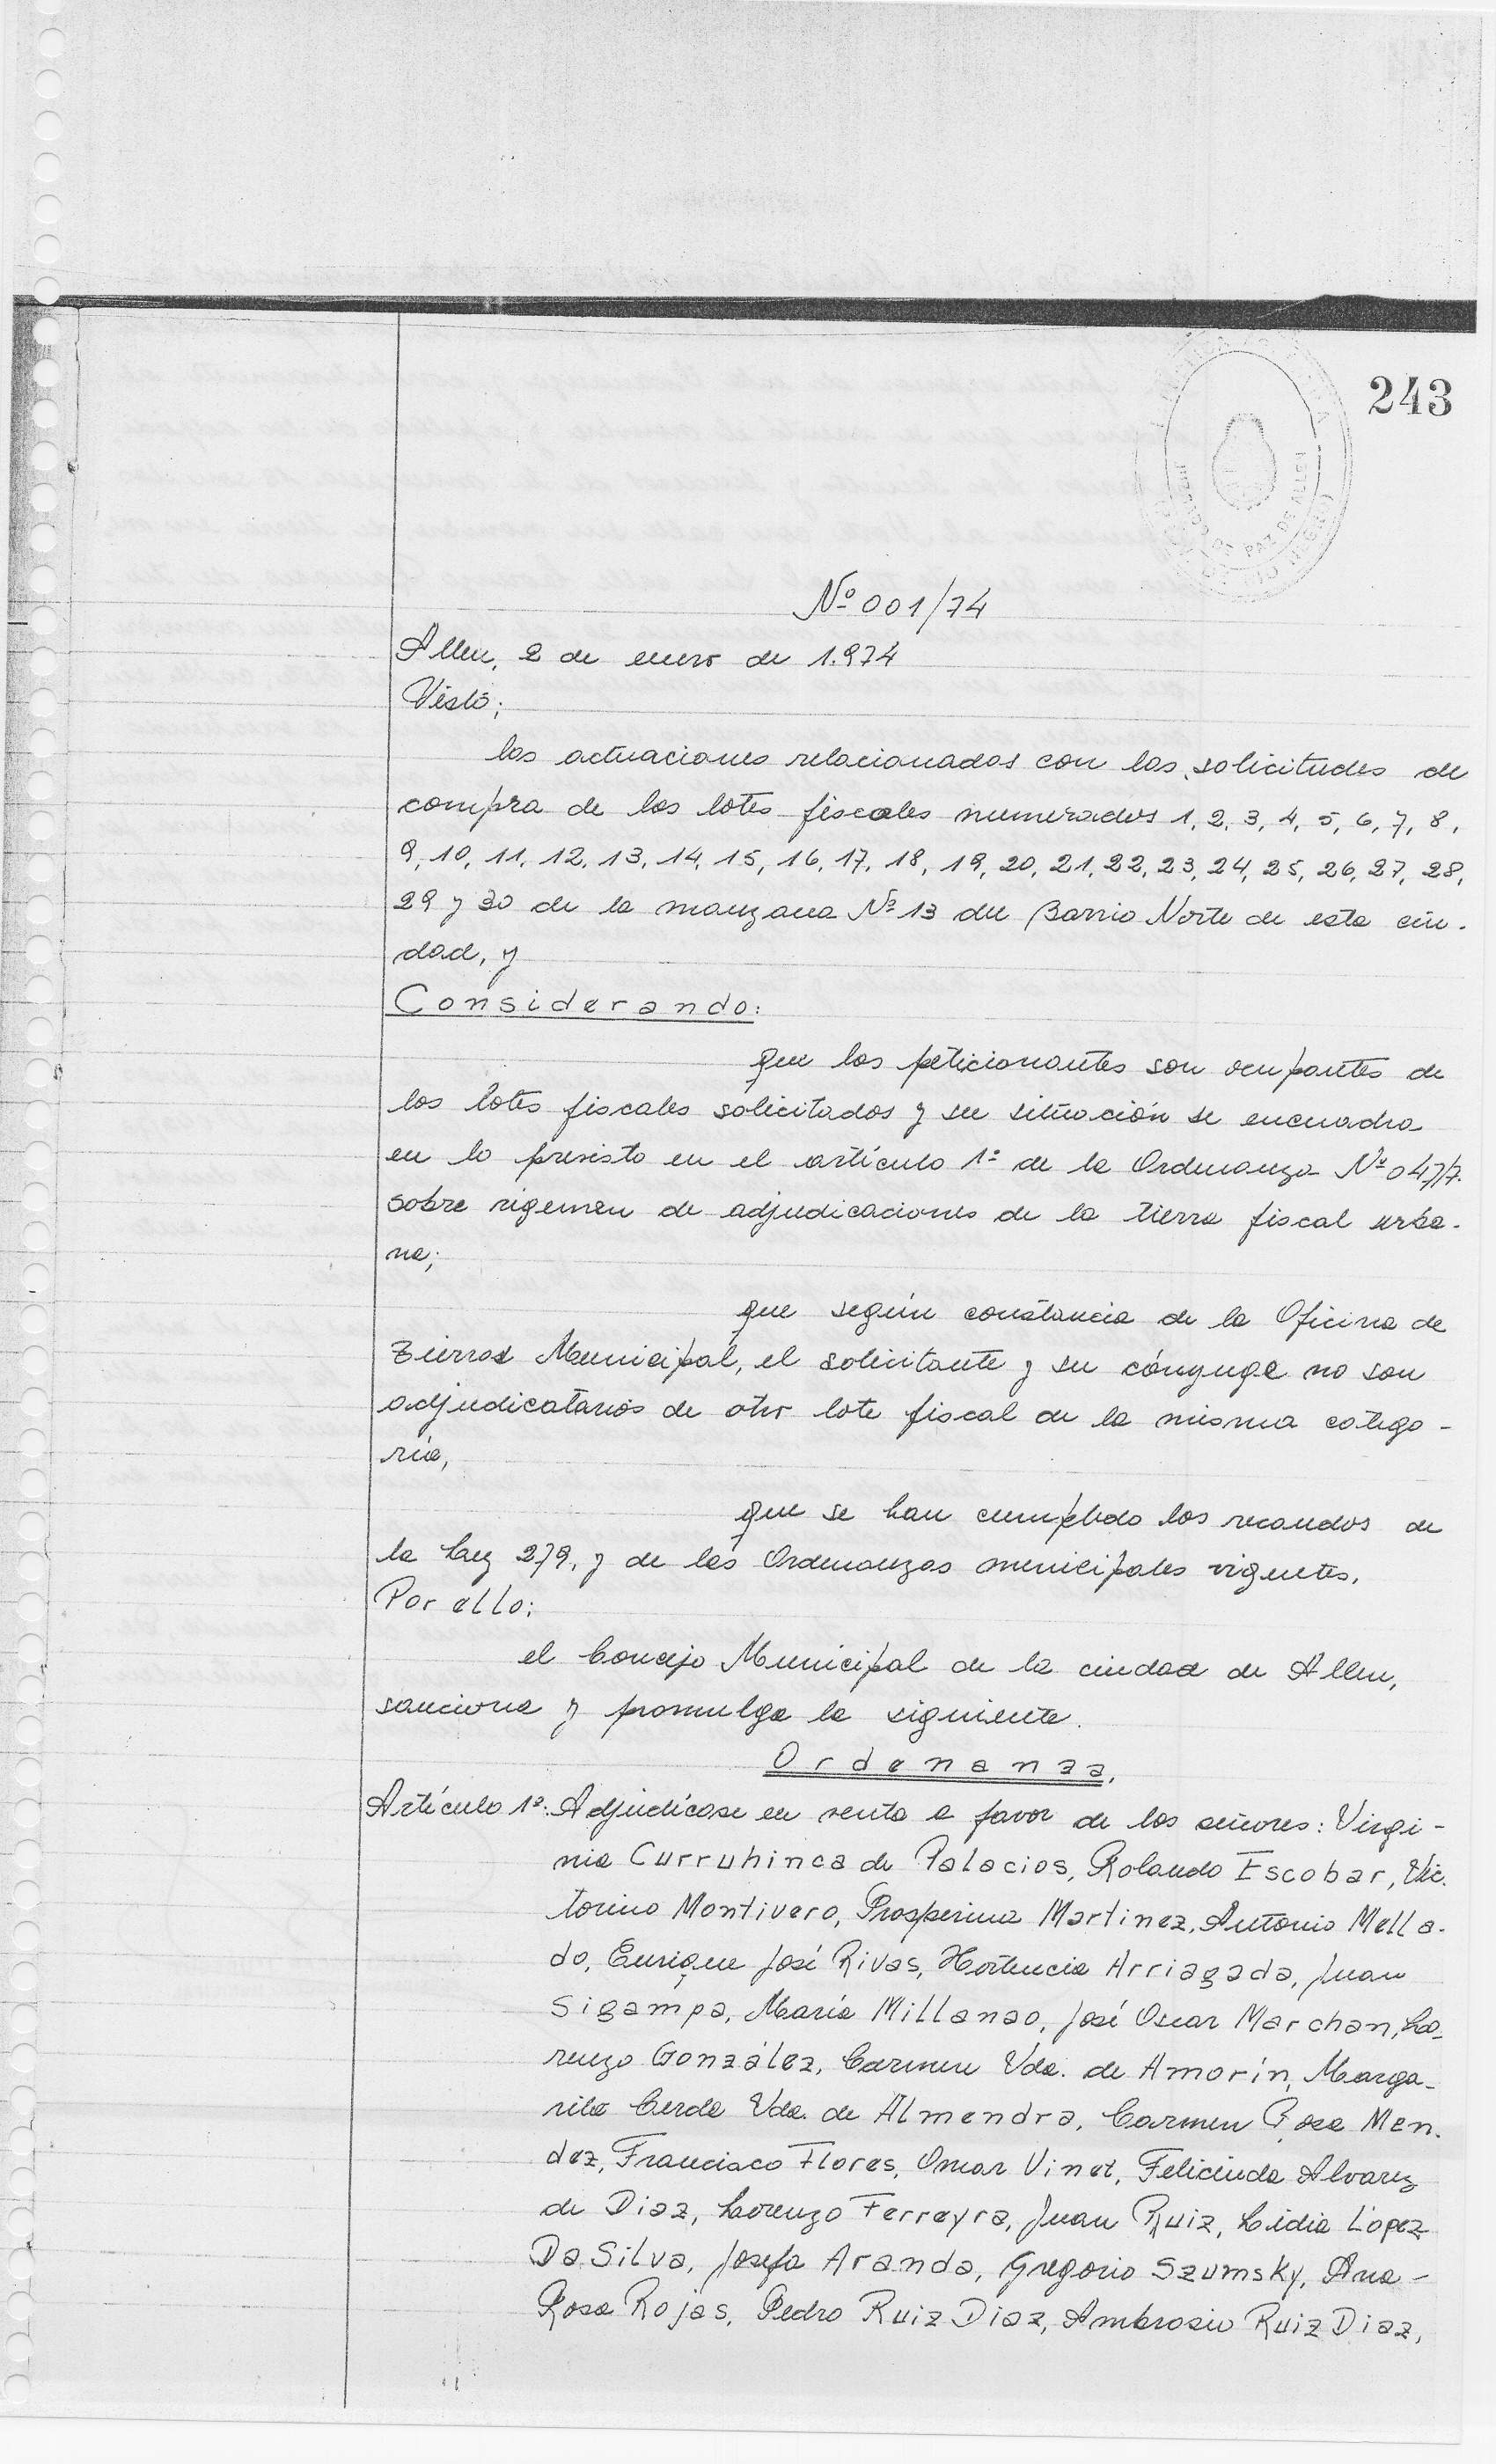 243
Nº 001/74
Allen, 2 de enero de 1.974
Visto;
las actuaciones relacionadas con las solicitudes de
compra de los lotes fiscales numerados 1, 2, 3, 4, 5, 6, 7, 8,
9, 10, 11, 12, 13, 14, 15, 16, 17, 18, 19, 20, 21, 22, 23, 24, 25, 26, 27, 28,
29 y 30 de la manzana Nº 13 del Barrio Norte de esta ciu-
dad, y
Considerando:
que los peticionantes son ocupantes de
los lotes fiscales solicitados y su situación se encuadra
en lo previsto en el artículo 1º de la Ordenanza Nº 047/7
sobre rigemen de adjudicaciones de la tierra fiscal urba-
na;
que según constancia de la Oficina de
Tierras Municipal, el solicitante y su cónyuge no son
adjudicatarios de otro lote fiscal de la misma catego-
ría,
que se han cumplido los recaudos de
la Ley 279, y de las Ordenanzas municipales vigentes.
Por ello:
el Concejo Municipal de la ciudad de Allen,
sanciona y promulga la siguiente.
Ordenanza,
Artículo 1º: Adjudícase en venta a favor de los señores: Virgi-
nia Curruhinca de Palacios, Rolando Escobar, Vic-
torino Montivero, Prosperina Martinez, Antonio Mella-
do, Enrique José Rivas, Hortencia Arriagada, Juan
Sigampa, María Millanao, José Oscar Marchan, Lo-
renzo González, Carmen Vda. de Amorín, Marga-
rita Cerda Vda. de Almendra, Carmen Rosa Men-
dez, Francisco Flores, Omar Vinet, Felicinda Alvarez
de Diaz, Lorenzo Ferreyra, Juan Ruiz, Lidia López
Da Silva, Josefa Aranda, Gregorio Szumsky, Ana-
Rosa Rojas, Pedro Ruiz Diaz, Ambrosio Ruiz Diaz,